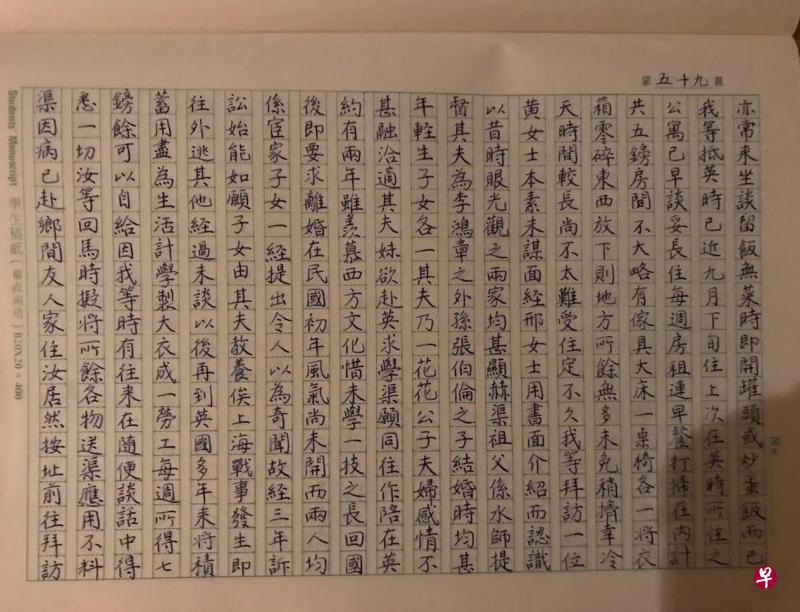 第五十九頁
No
亦常來坐談留飯無菜時即開罐頭或炒蛋飯而已
我等抵英時已近九月下旬住上次在英時所住之
公寓已早談妥長住每週房租連早餐打掃在內計
共五鎊房間不大略有傢具大床一桌椅各一將衣
箱零碎東西放下則地方所餘無多未免稍擠幸冷
天時間較長尚不太難受住定不久我等拜訪一位
黄女士本素未謀面經邢女士用書面介紹而認識
以昔時眼光觀之兩家均甚顯赫渠祖父係水師提
督其夫為李鴻章之外孫張佰倫之子結婚時均甚
年輕生子女各一其夫乃一花花公子夫婦感情不
甚融洽適其夫妹欲赴英求學渠願同往作陪在英
約有兩年雖羨慕西方文化惜未學一技之長回國
後即要求離婚在民國初年風氣尚未開而兩人均
係宦家子女一經提出令人以為奇聞故經三年訴
訟始能如願子女由其夫教養俟上海戰事發生即
往外逃其他經過未談以後再到英國多年來將積
蓄用盡為生活計學製大衣成一勞工每週所得七
鎊餘可以自給因我等時有往來在隨便談話中得
悉一切汝等回馬時擬將所餘各物送渠應用不料
渠因病已赴鄉間友人家住汝居然按址前往拜訪
Students' Manuscript 學生稿紙（橫直兩用）R20X20=400
早